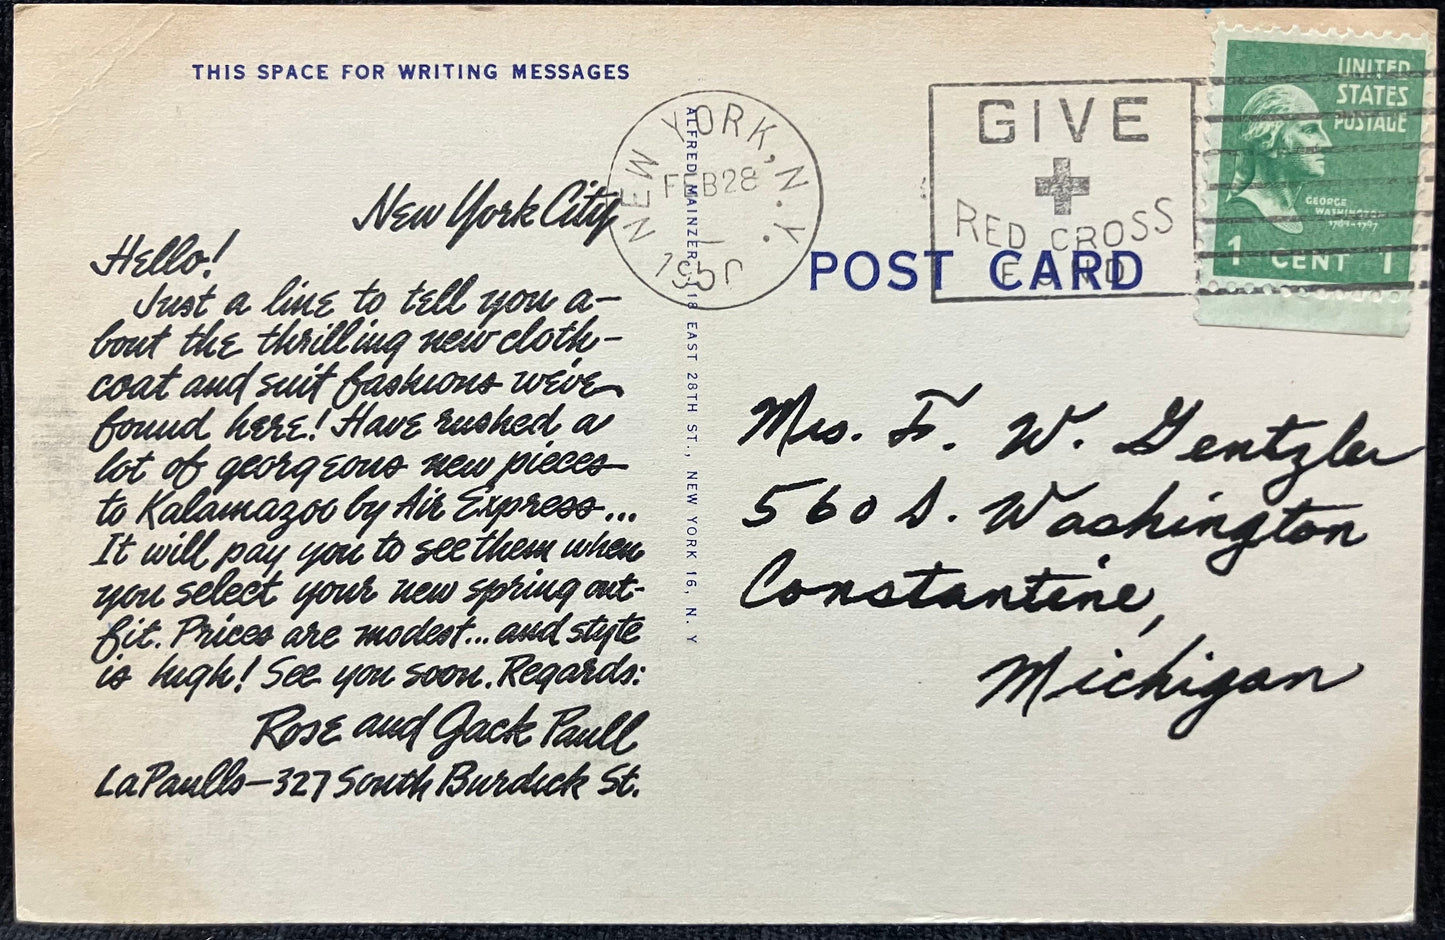 THIS SPACE FOR WRITING MESSAGES
New York City
Hello!
Just a line to tell you a-
bout the thrilling new cloth-
coat and suit fashions we've
found here! Have rushed a
lot of georgeous new pieces
to Kalamazoo by Air Express...
It will pay you to see them when
you select your new spring out-
fit. Prices are modest... and style
is high! See you soon. Regards:
Rose and Jack Paull
LaPaulls-327 South Burdick St.
ALFRED MAINZER, 118 EAST 28TH ST., NEW YORK 16, N. Y
NEW YORK, N.Y.
FEB 28
1950
GIVE
RED CROSS
FUND
POST CARD
UNITED
STATES
POSTAGE
GEORGE
WASHINGTON
1789-1797
1 CENT 1
Mrs. F. W. Gentzler
560 S. Washington
Constantine,
Michigan